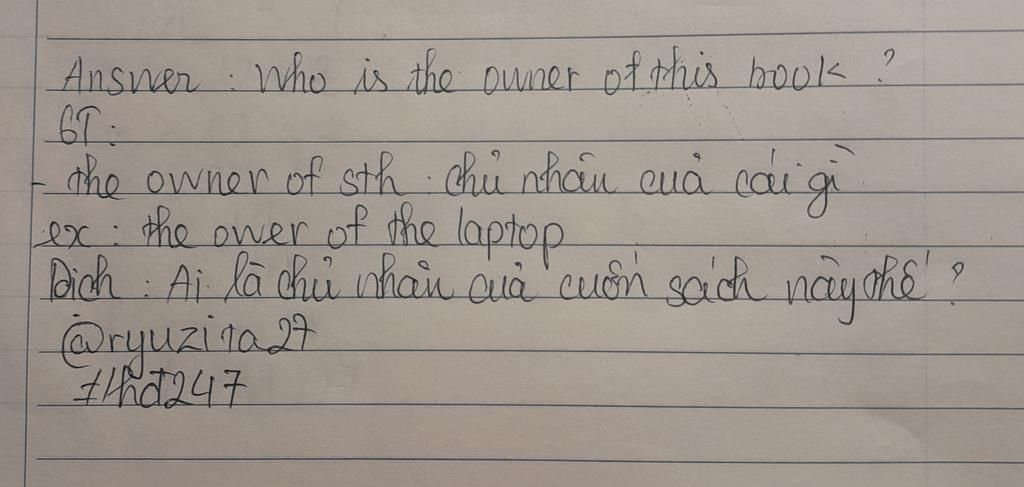 Answer : Who is the owner of this book ?
GT :
- the owner of sth : chủ nhân của cái gì
ex : the ower of the laptop
Dịch : Ai là chủ nhân của cuốn sách này thế ?
@ryuzi1a27
#hd247